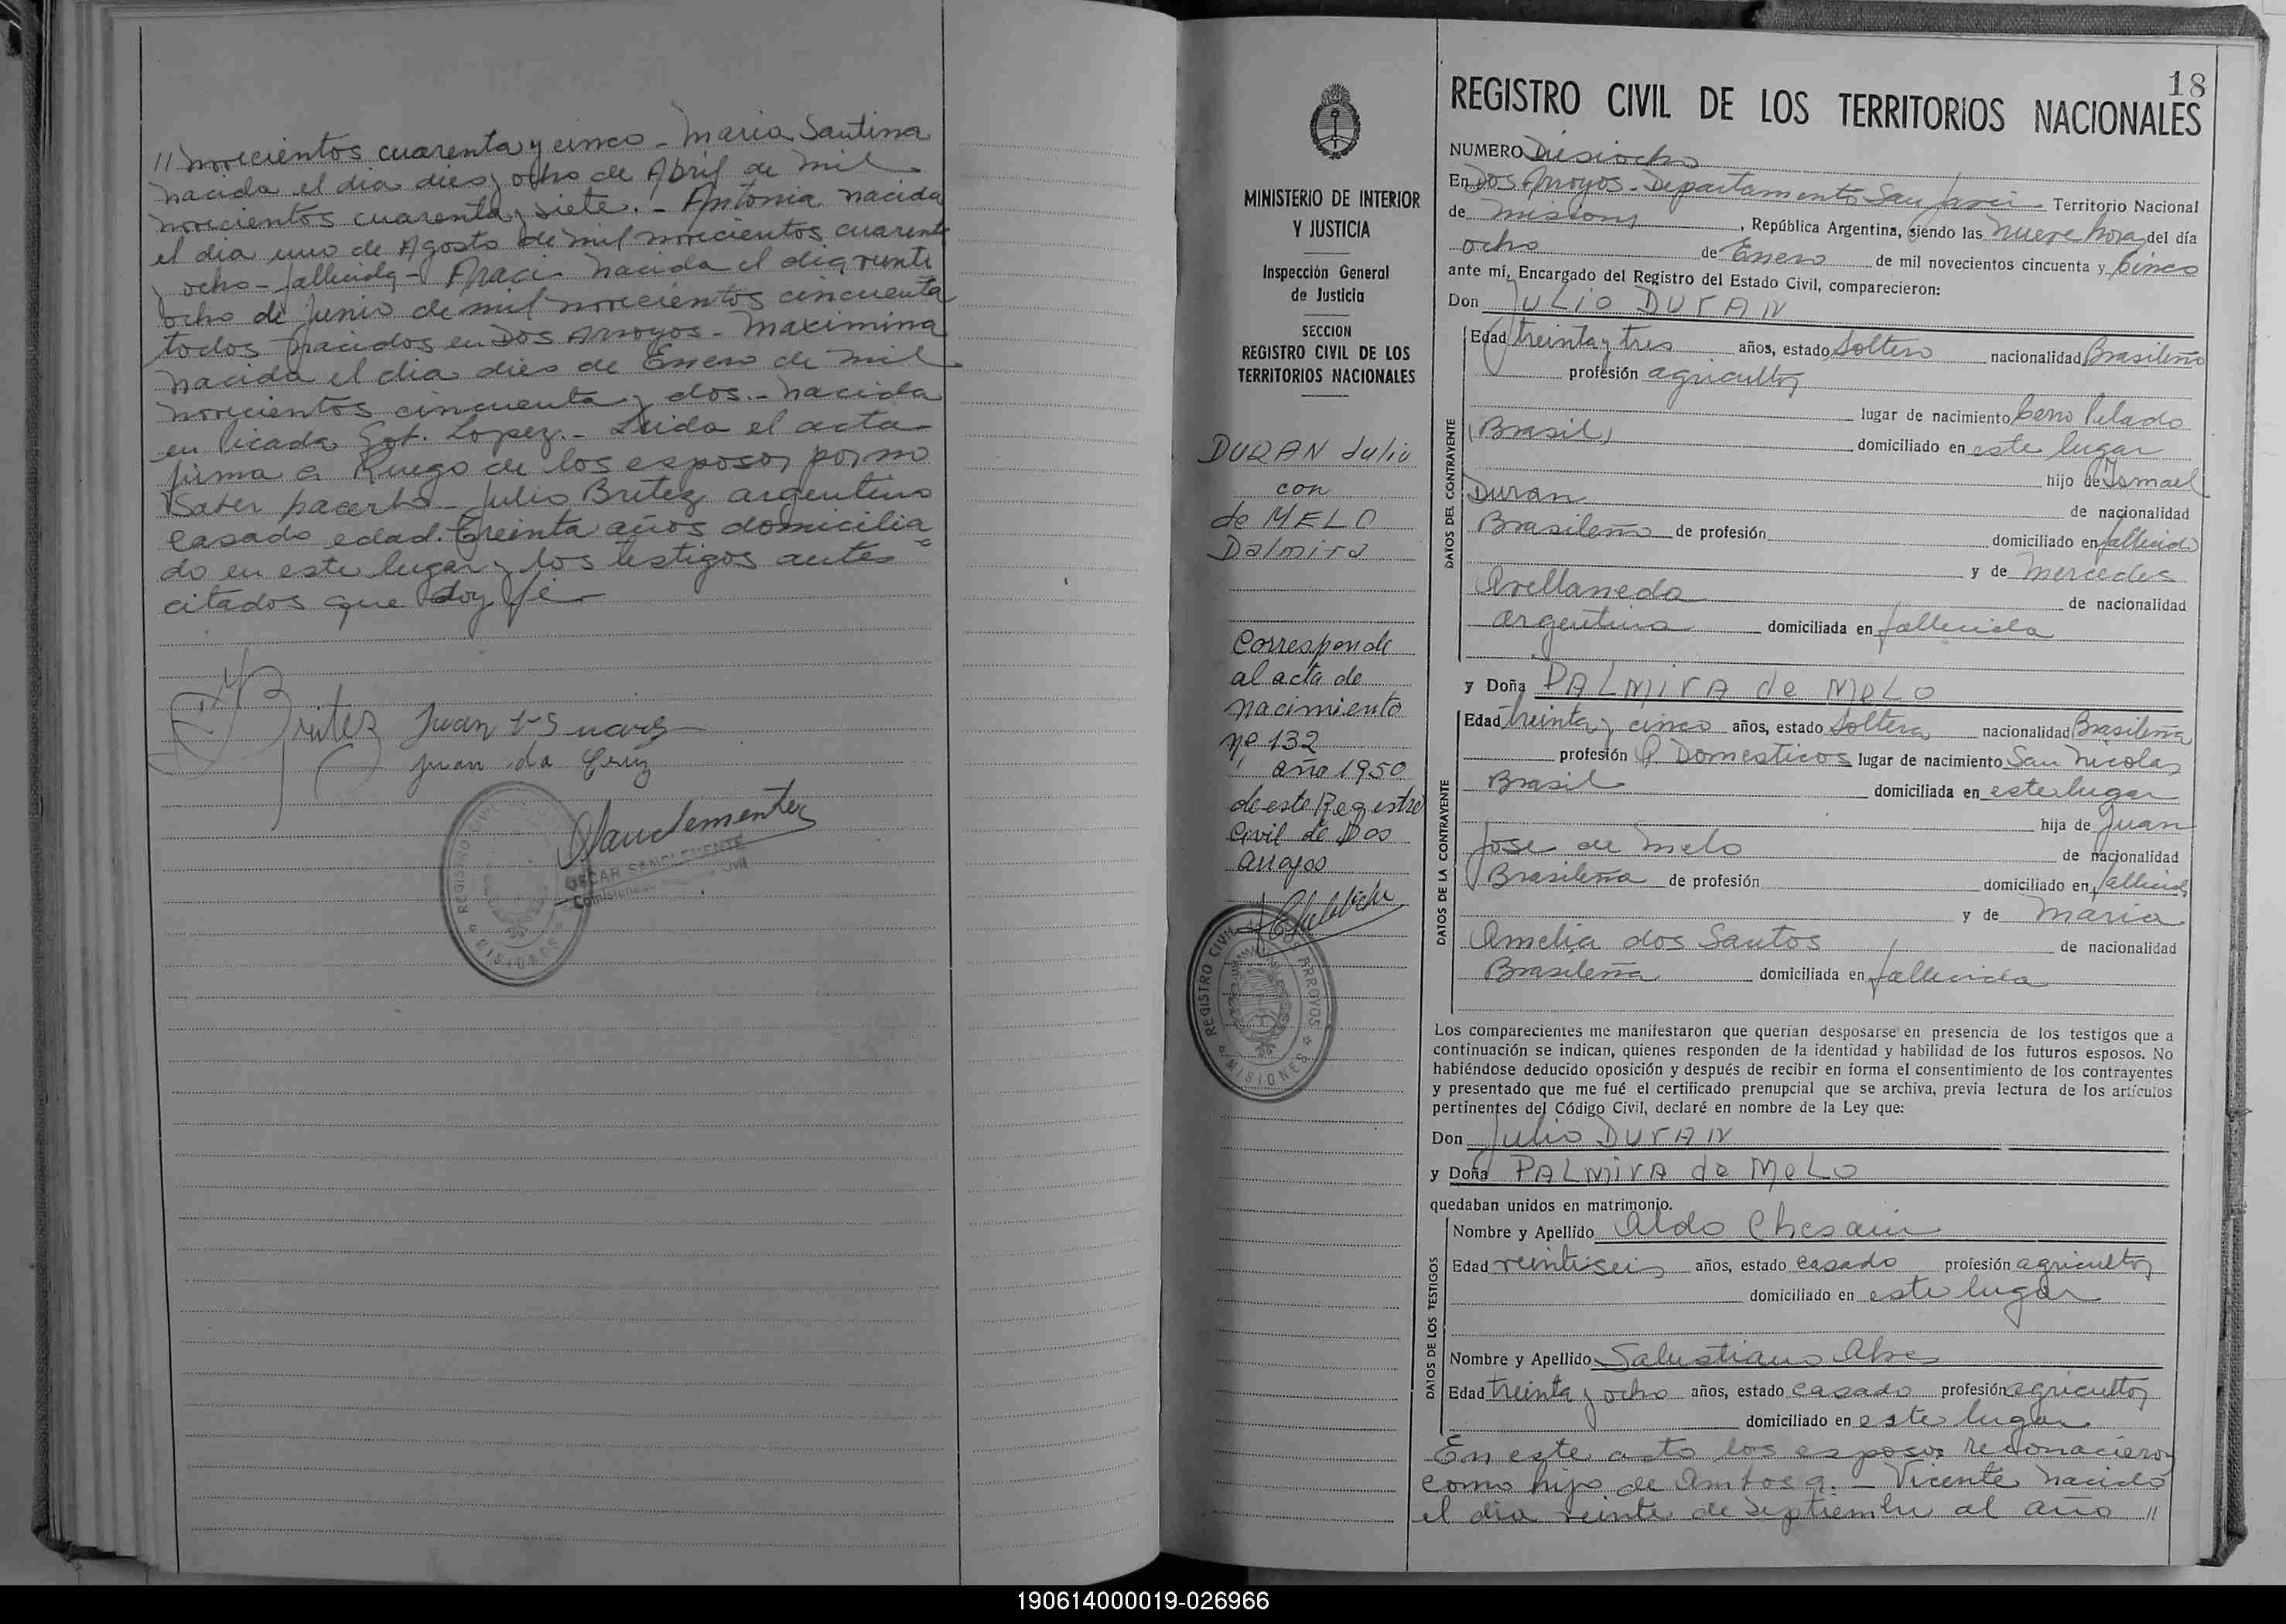 // novecientos cuarenta y cinco - Maria Santina
nacida el dia dies y ocho de Abril de mil
novecientos cuarenta y siete. - Antonia nacida
el dia uno de Agosto de mil novecientos cuarenta
y ocho - fallecida - nacida el dia veinte
ocho de Junio de mil novecientos cincuenta
todos nacidos en Dos Arroyos - Maximina
nacida el dia dies de Enero de mil
novecientos cincuenta y dos. - nacida
en Picada Gob. Lopez. - Leida el acta
firma a Ruego de los esposos por no
saber hacerlo - Julio Britez argentino
casado edad. treinta años domicilia
do en este lugar y los testigos antes
citados que doy fé -
Britez Juan
Juan da Cruz
Sanclemente
OSCAR SANCLEMENTE
REGISTRO CIVIL
MISIONES
MINISTERIO DE INTERIOR
Y JUSTICIA
Inspección General
de Justicia
SECCION
REGISTRO CIVIL DE LOS
TERRITORIOS NACIONALES
DURAN Julio
con
de MELO
Palmira
Corresponde
al acta de
nacimiento
nº 132
año 1950
de este Registro
Civil de Dos
Arroyos
REGISTRO CIVIL DE DOS ARROYOS
MISIONES
18
REGISTRO CIVIL DE LOS TERRITORIOS NACIONALES
NUMERO Diesiocho
En Dos Arroyos - Departamento San Javier Territorio Nacional
de Misiones, República Argentina, siendo las nueve horas del día
ocho de Enero de mil novecientos cincuenta y cinco
ante mí, Encargado del Registro del Estado Civil, comparecieron:
Don JULIO DURAN
DATOS DEL CONTRAYENTE
Edad treinta y tres años, estado Soltero nacionalidad Brasileño
profesión agricultor
lugar de nacimiento Cerro Pelado
(Brasil) domiciliado en este lugar
hijo de Ismael
Duran de nacionalidad
Brasileño de profesión domiciliado en fallecido
y de Mercedes
Avellaneda de nacionalidad
argentina domiciliada en fallecida
y Doña PALMIRA de MELO
DATOS DE LA CONTRAYENTE
Edad treinta y cinco años, estado Soltera nacionalidad Brasileña
profesión Q. Domesticos lugar de nacimiento San Nicolas
Brasil domiciliada en este lugar
hija de Juan
Jose de Melo de nacionalidad
Brasileña de profesión domiciliado en fallecido
y de Maria
Amelia dos Santos de nacionalidad
Brasileña domiciliada en fallecida
Los comparecientes me manifestaron que querían desposarse en presencia de los testigos que a
continuación se indican, quienes responden de la identidad y habilidad de los futuros esposos. No
habiéndose deducido oposición y después de recibir en forma el consentimiento de los contrayentes
y presentado que me fué el certificado prenupcial que se archiva, previa lectura de los artículos
pertinentes del Código Civil, declaré en nombre de la Ley que:
Don Julio DURAN
y Doña PALMIRA de MELO
quedaban unidos en matrimonio.
DATOS DE LOS TESTIGOS
Nombre y Apellido Aldo
Edad veintiseis años, estado casado profesión agricultor
domiciliado en este lugar
Nombre y Apellido Salustiano Alves
Edad treinta y ocho años, estado casado profesión agricultor
domiciliado en este lugar
En este acto los esposos reconocieron
como hijo de Ambos a. - Vicente nacido
el dia veinte de Septiembre al año //
190614000019-026966